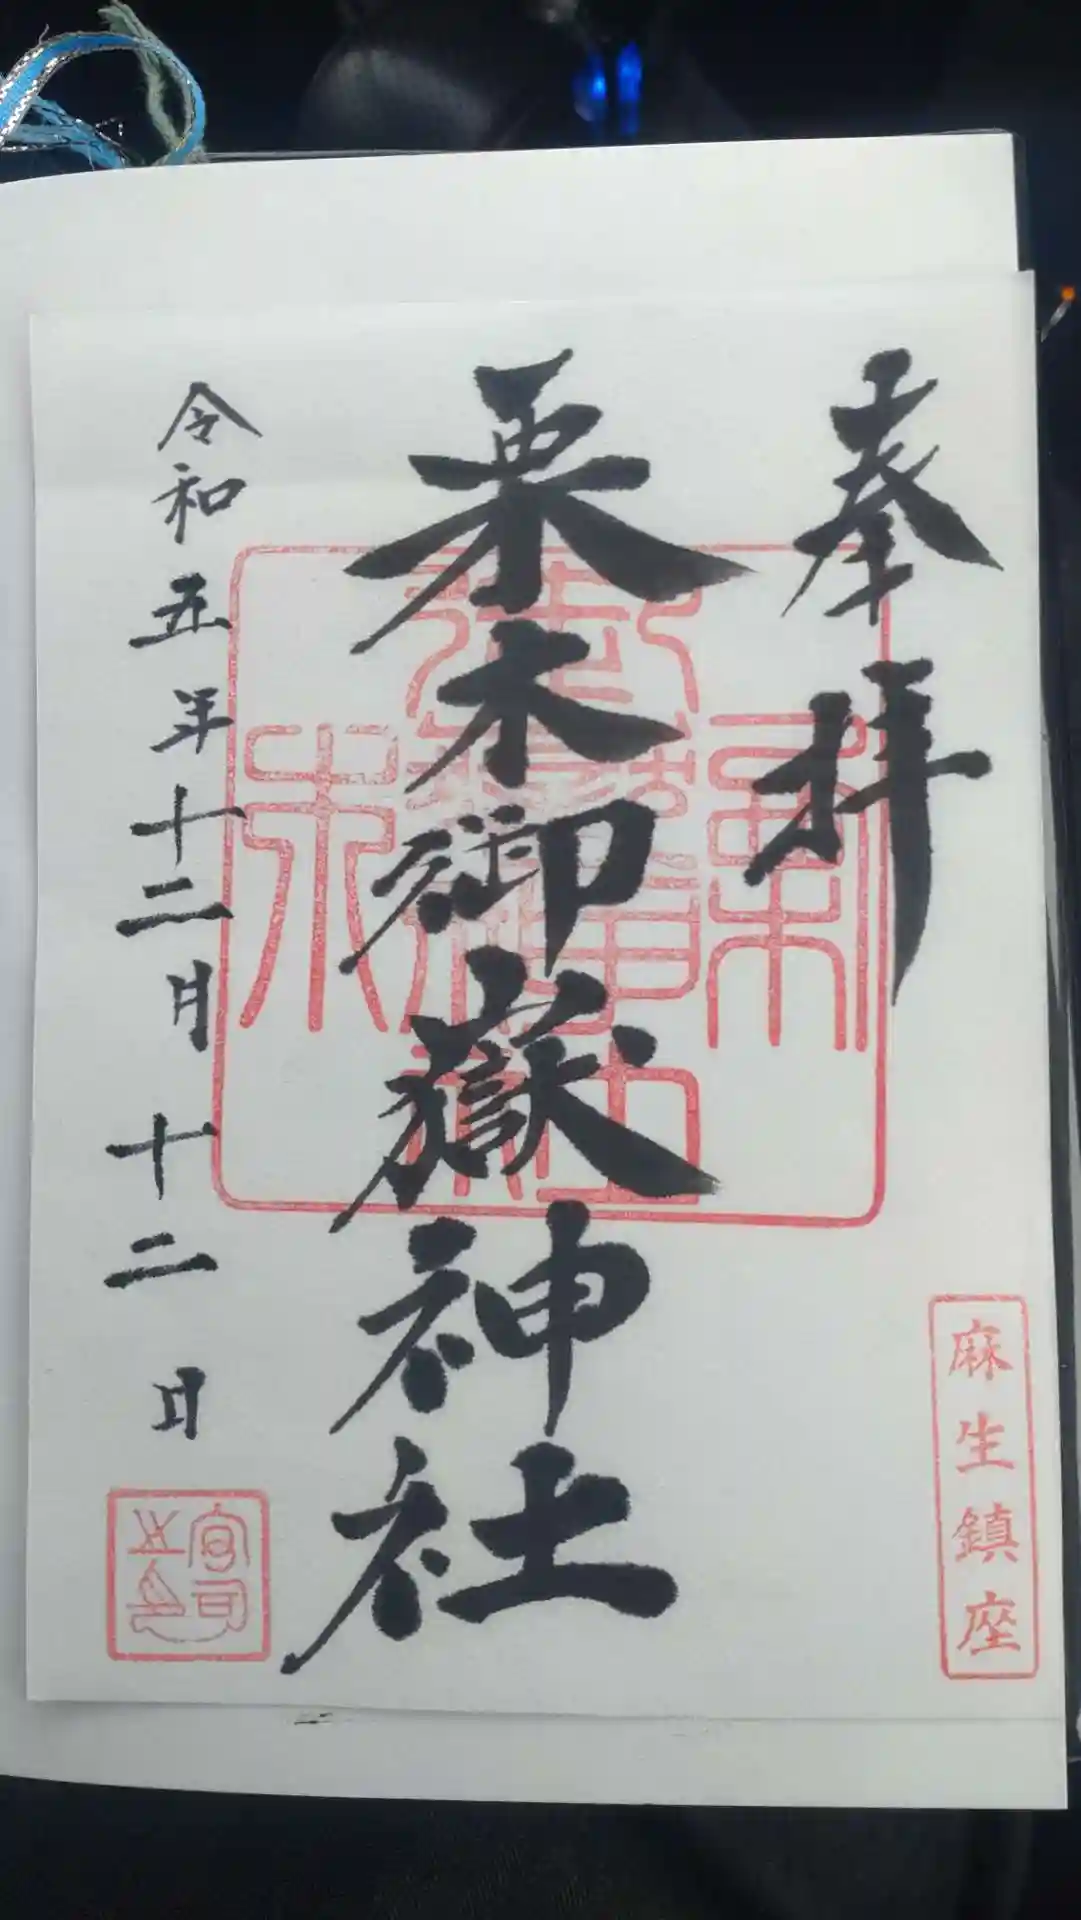 奉拝
麻生鎮座
栗木御嶽神社
令和五年十二月十二日
宮司之印